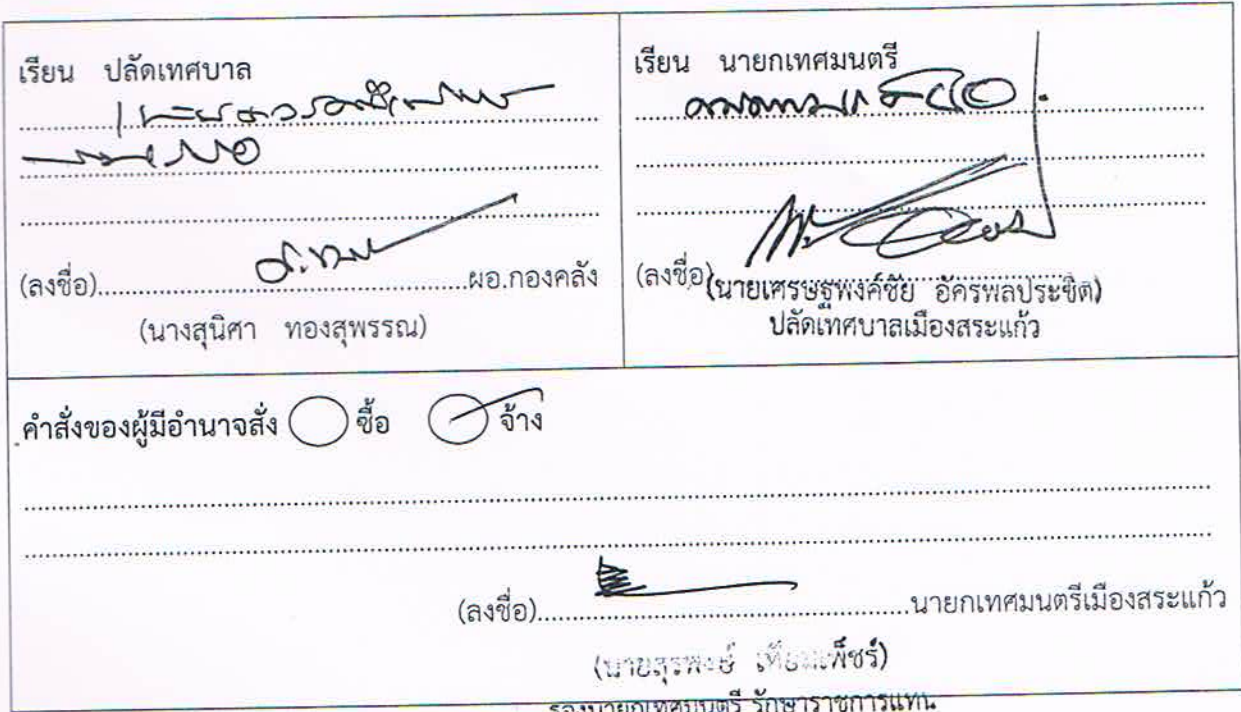 เรียน ปลัดเทศบาล
(ลงชื่อ)..........ผอ.กองคลัง
(นางสุนิศา ทองสุพรรณ)
เรียน นายกเทศมนตรี
(ลงชื่อ)
(นายเศรษฐพงค์ชัย อัครพลประชิต)
ปลัดเทศบาลเมืองสระแก้ว
คำสั่งของผู้มีอำนาจสั่ง ซื้อ จ้าง
(ลงชื่อ)..........นายกเทศมนตรีเมืองสระแก้ว
(นายสุรพงษ์ เทียมเพ็ชร์)
รองนายกเทศมนตรี รักษาราชการแทน